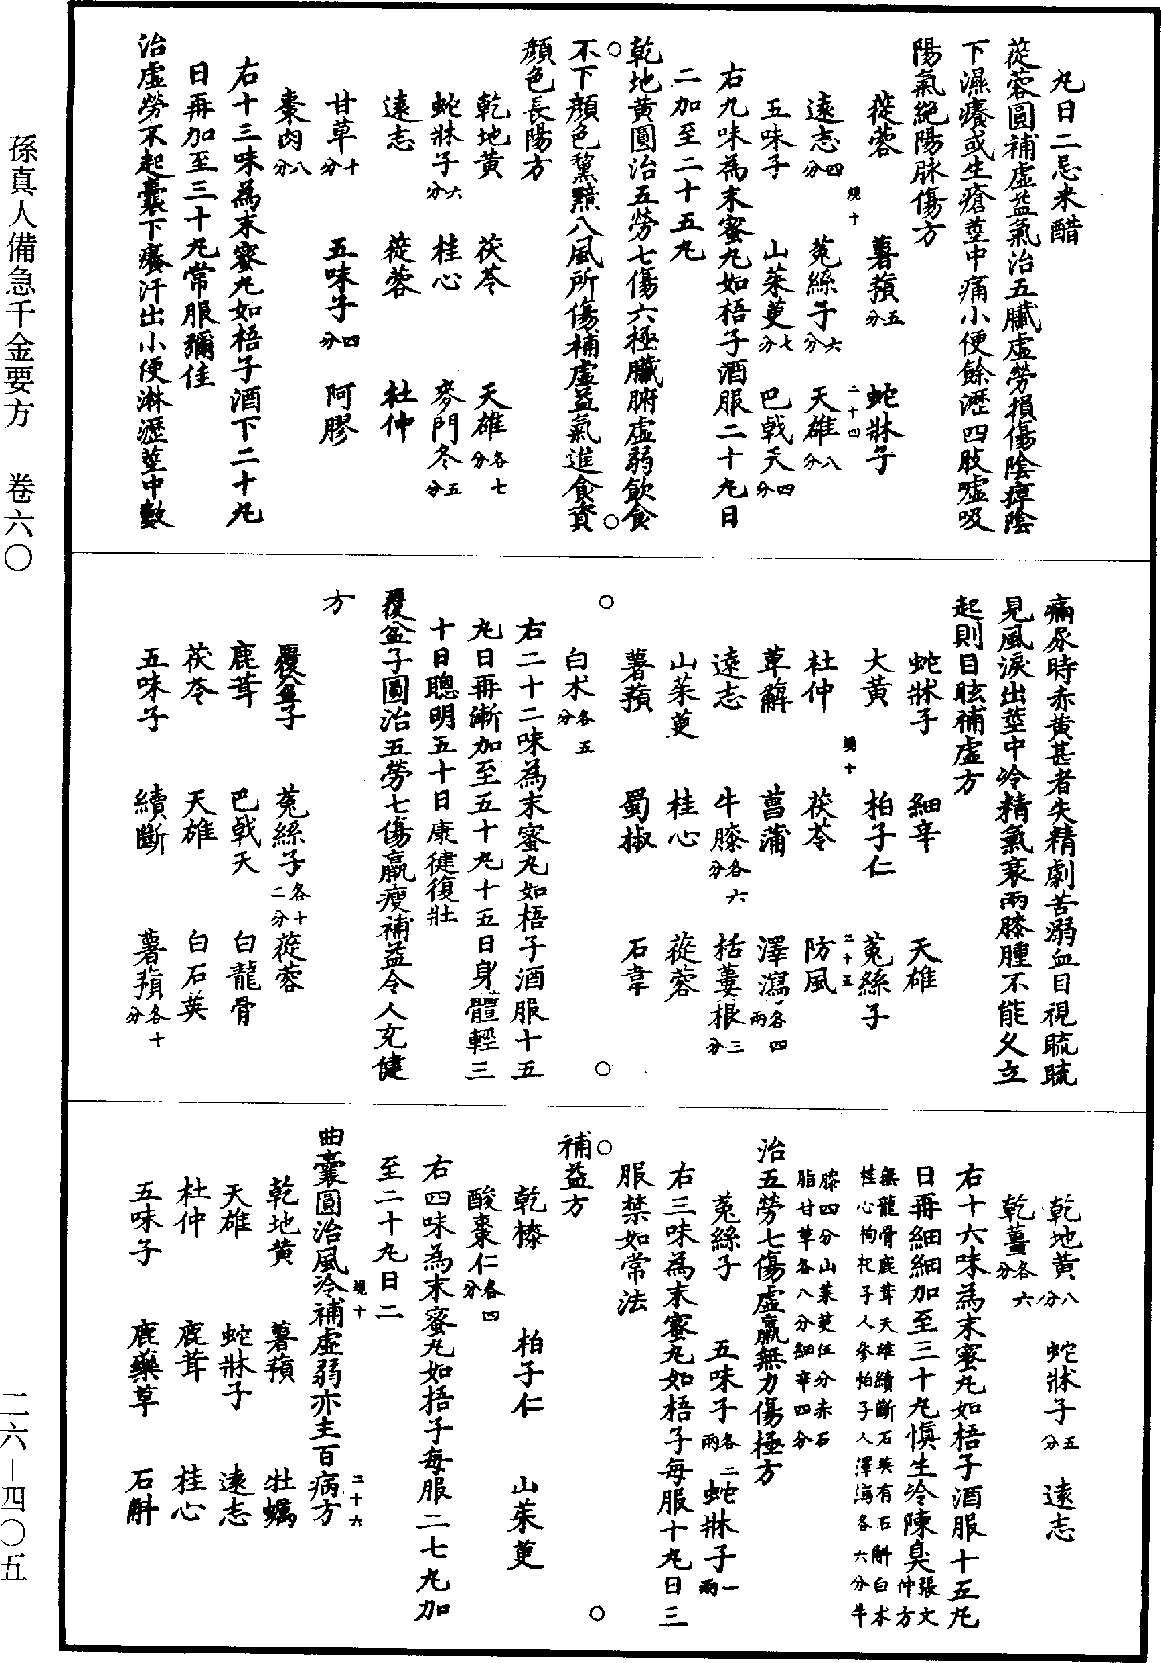 孫真人備急千金要方　卷六〇
二六—四〇五
丸日二忌米醋
蓯蓉圓補虛益氣治五臟虛勞損傷陰痺陰
下濕癢或生瘡莖中痛小便餘瀝四肢噓吸
陽氣絕陽脉傷方
蓯蓉　薯蕷五分　蛇牀子
遠志四分　菟絲子六分　天雄八分
五味子　山茱萸七分　巴戟天四分
右九味為末蜜丸如梧子酒服二十丸日
二加至二十五丸
乾地黃圓治五勞七傷六極臟腑虛弱飲食
不下顏色黧黮八風所傷補虛益氣進食資
顏色長陽方
乾地黃　茯苓　天雄各七分
蛇牀子六分　桂心　麥門冬五分
遠志　蓯蓉　杜仲
甘草十分　五味子四分　阿膠
棗肉八分
右十三味為末蜜丸如梧子酒下二十丸
日再加至三十丸常服彌佳
治虛勞不起囊下癢汗出小便淋瀝莖中數
痛尿時赤黃甚者失精劇苦溺血目視䀮䀮
見風淚出莖中冷精氣衰兩膝腫不能久立
起則目眩補虛方
蛇牀子　細辛　天雄
大黃　柏子仁　菟絲子
杜仲　茯苓　防風
萆薢　菖蒲　澤瀉各四兩
遠志　牛膝各六分　栝蔞根三分
山茱萸　桂心　蓯蓉
薯蕷　蜀椒　石韋
白朮各五分
右二十二味為末蜜丸如梧子酒服十五
丸日再漸加至五十丸十五日身體輕三
十日聰明五十日康健復壯
覆盆子圓治五勞七傷羸瘦補益令人充健
方
覆盆子　菟絲子各十二分　蓯蓉
鹿茸　巴戟天　白龍骨
茯苓　天雄　白石英
五味子　續斷　薯蕷各十分
乾地黃八分　蛇牀子五分　遠志
乾薑各六分
右十六味為末蜜丸如梧子酒服十五丸
日再細細加至三十丸慎生冷陳臭張文仲方
無龍骨鹿茸天雄續斷石英有石斛白朮
桂心枸杞子人參柏子人澤瀉各六分牛
膝四分山茱萸伍分赤石
脂甘草各八分細辛四分
治五勞七傷虛羸無力傷極方
菟絲子　五味子各二兩　蛇牀子一兩
右三味為末蜜丸如梧子每服十丸日三
服禁如常法
補益方
乾榛　柏子仁　山茱萸
酸棗仁各四分
右四味為末蜜丸如梧子每服二七丸加
至二十丸日二
曲囊圓治風冷補虛弱亦主百病方
乾地黃　薯蕷　牡蠣
天雄　蛇牀子　遠志
杜仲　鹿茸　桂心
五味子　鹿藥草　石斛